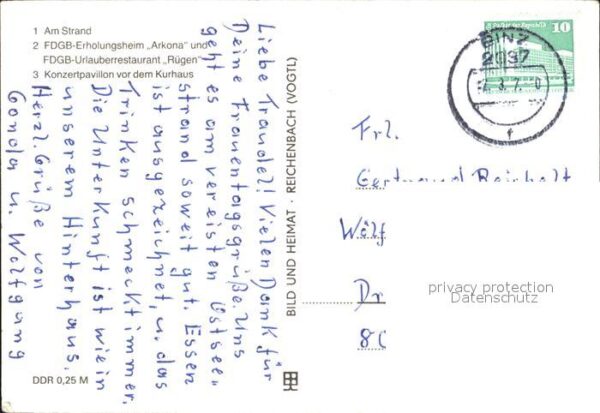 1 Am Strand
2 FDGB-Erholungsheim „Arkona" und
FDGB-Urlauberrestaurant „Rügen"
3 Konzertpavillon vor dem Kurhaus
Liebe Traudel! Vielen Dank für
Deine Frauentagsgrüße. Uns
geht es am vereisten Ostsee-
strand soweit gut. Essen
ist ausgezeichnet, u. das
Trinken schmeckt immer.
Die Unterkunft ist wie in
unserem Hinterhaus.
Herzl. Grüße von
Gonda u. Wolfgang
DDR 0,25 M
BILD UND HEIMAT · REICHENBACH (VOGTL)
10
BINZ
2337
f
Frl.
Gertraud Reichelt
Wolf
Dr
80
privacy protection
Datenschutz